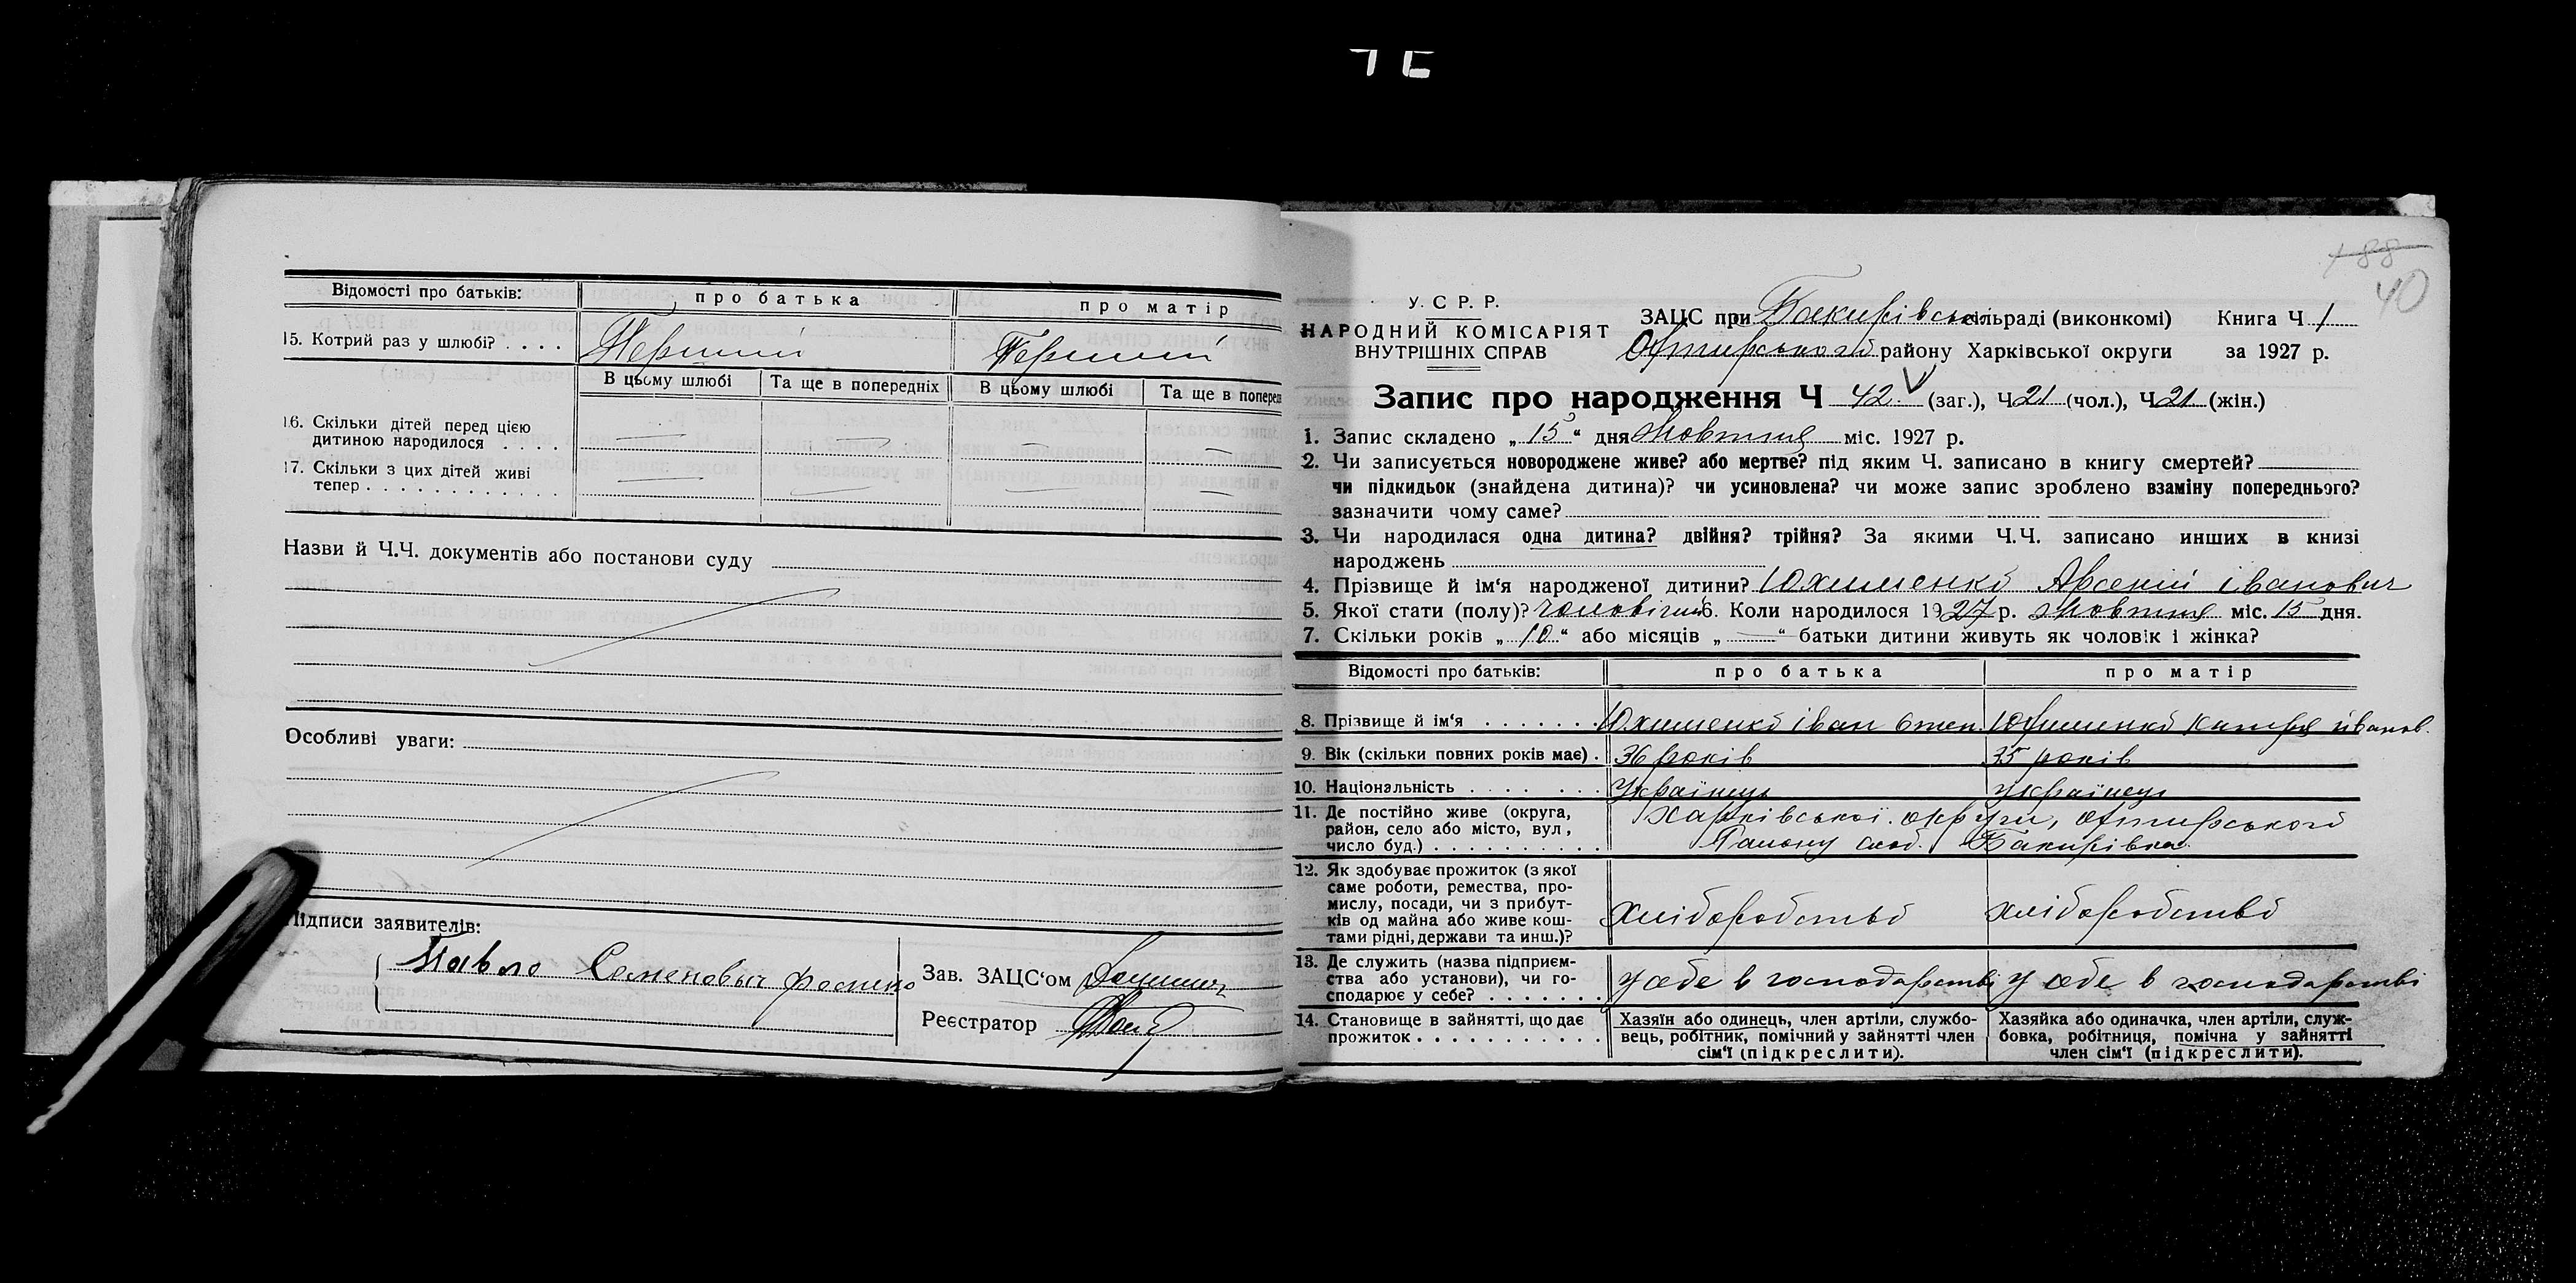 Відомості про батьків: про батька про матір
15. Котрий раз у шлюбі? . . . . Перший Перший
В цьому шлюбі Та ще в попередніх В цьому шлюбі Та ще в поперед
16. Скільки дітей перед цією
дитиною народилося . . . . — — — —
17. Скільки з цих дітей живі
тепер . . . . . . . . . . . . — — — —
Назви й Ч.Ч. документів або постанови суду
Особливі уваги:
Підписи заявителів:
Павло Семенович
Зав. ЗАЦС‘ом
Реєстратор
188
40
У. С. Р. Р.
НАРОДНИЙ КОМІСАРІЯТ
ВНУТРІШНІХ СПРАВ
ЗАЦС при Бакирівськ сільраді (виконкомі) Книга Ч 1
Охтирського району Харківської округи за 1927 р.
Запис про народження Ч 42 (заг.), Ч 21 (чол.), Ч 21 (жін.)
1. Запис складено „ 15 “ дня Жовтня міс. 1927 р.
2. Чи записується новороджене живе? або мертве? під яким Ч. записано в книгу смертей?
чи підкидьок (знайдена дитина)? чи усиновлена? чи може запис зроблено взаміну попереднього?
зазначити чому саме?
3. Чи народилася одна дитина? двійня? трійня? За якими Ч.Ч. записано инших в книзі
народжень
4. Прізвище й ім‘я народженої дитини? Юхименко Арсеній Іванович
5. Якої стати (полу)? чоловічий 6. Коли народилося 1927 р. Жовтня міс. 15 дня.
7. Скільки років „ 10 “ або місяців „ — “ батьки дитини живуть як чоловік і жінка?
Відомості про батьків: про батька про матір
8. Прізвище й ім‘я . . . . . . . Юхименко Іван Степ. Юхименко Катря Іванов.
9. Вік (скільки повних років має) . 36 років 35 років
10. Національність . . . . . . . Українець Українець
11. Де постійно живе (округа,
район, село або місто, вул,
число буд.) . . . . . . . . . .
Харківської округи, Охтирського
Району слоб. Бакирівка
12. Як здобуває прожиток (з якої
саме роботи, ремества, про-
мислу, посади, чи з прибут-
ків од майна або живе кош-
тами рідні, держави та инш.)?
хліборобство хліборобство
13. Де служить (назва підприєм-
ства або установи), чи го-
сподарює у себе? . . . . . . .
у себе в господарстві у себе в господарстві
14. Становище в зайнятті, що дає
прожиток . . . . . . . . . . .
Хазяїн або одинець, член артіли, службо-
вець, робітник, помічний у зайнятті член
сім‘ї (підкреслити).
Хазяйка або одиначка, член артіли, служ-
бовка, робітниця, помічна у зайнятті
член сім‘ї (підкреслити).